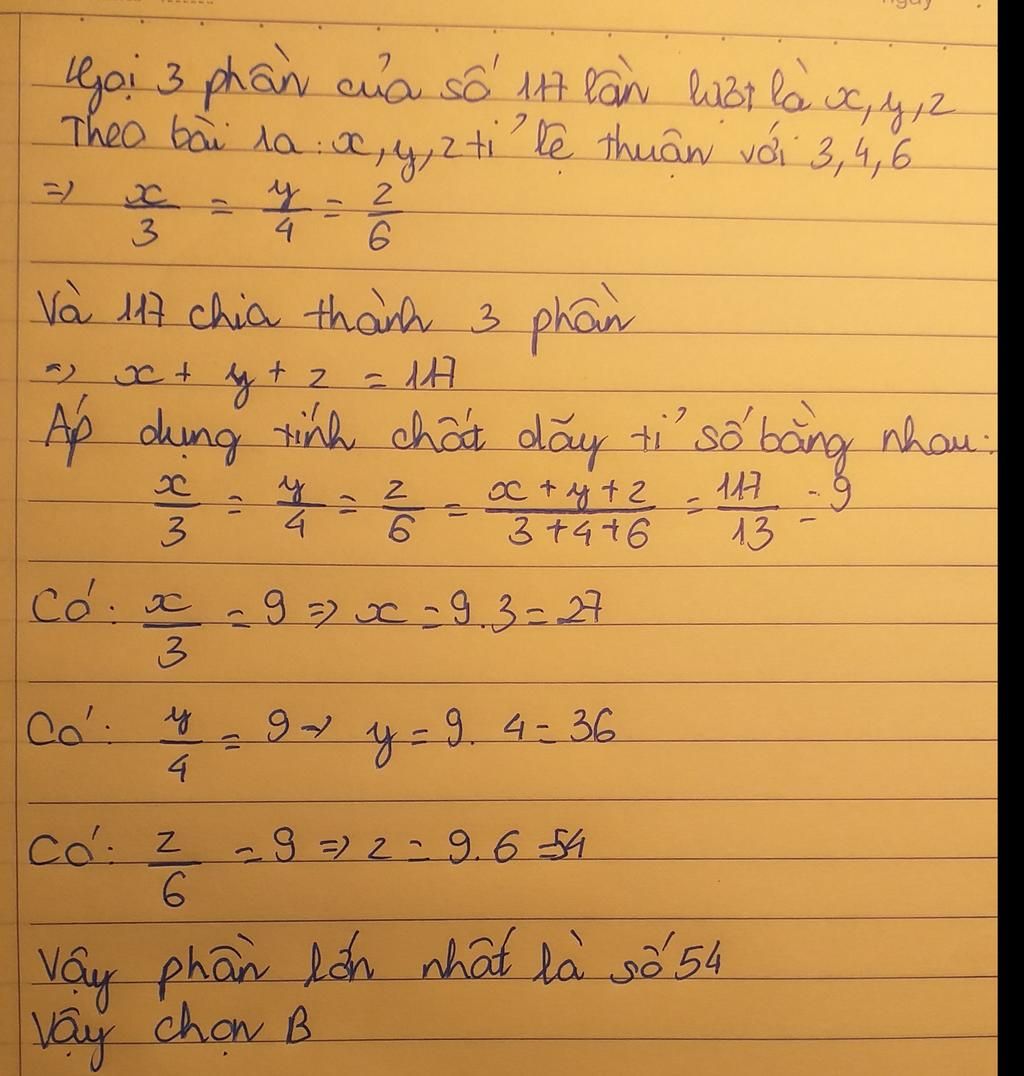 Gọi 3 phần của số 117 lần lượt là x, y, z
Theo bài ra: x, y, z tỉ lệ thuận với 3, 4, 6
=> x/3 = y/4 = z/6
Và 117 chia thành 3 phần
=> x + y + z = 117
Áp dụng tính chất dãy tỉ số bằng nhau:
x/3 = y/4 = z/6 = (x + y + z)/(3 + 4 + 6) = 117/13 = 9
Có: x/3 = 9 => x = 9.3 = 27
Có: y/4 = 9 => y = 9. 4 = 36
Có: z/6 = 9 => z = 9. 6 = 54
Vậy phần lớn nhất là số 54
Vậy chọn B